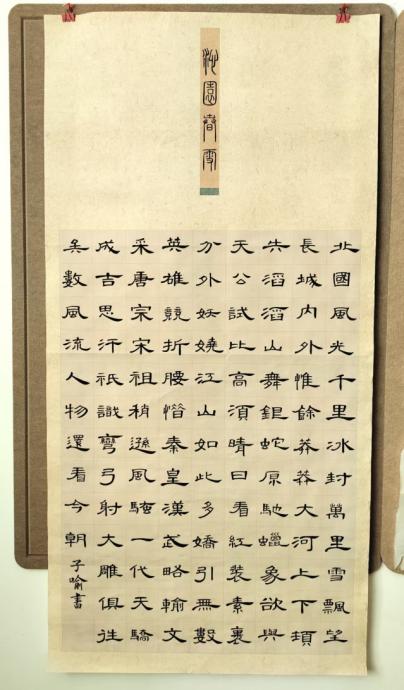 沁園春雪
北國風光千里冰封萬里雪飄望
長城內外惟餘莽莽大河上下頓
失滔滔山舞銀蛇原馳蠟象欲與
天公試比高須晴日看紅裝素裹
分外妖嬈江山如此多嬌引無數
英雄競折腰惜秦皇漢武略輸文
采唐宗宋祖稍遜風騷一代天驕
成吉思汗祇識彎弓射大雕俱往
矣數風流人物還看今朝
子喻書